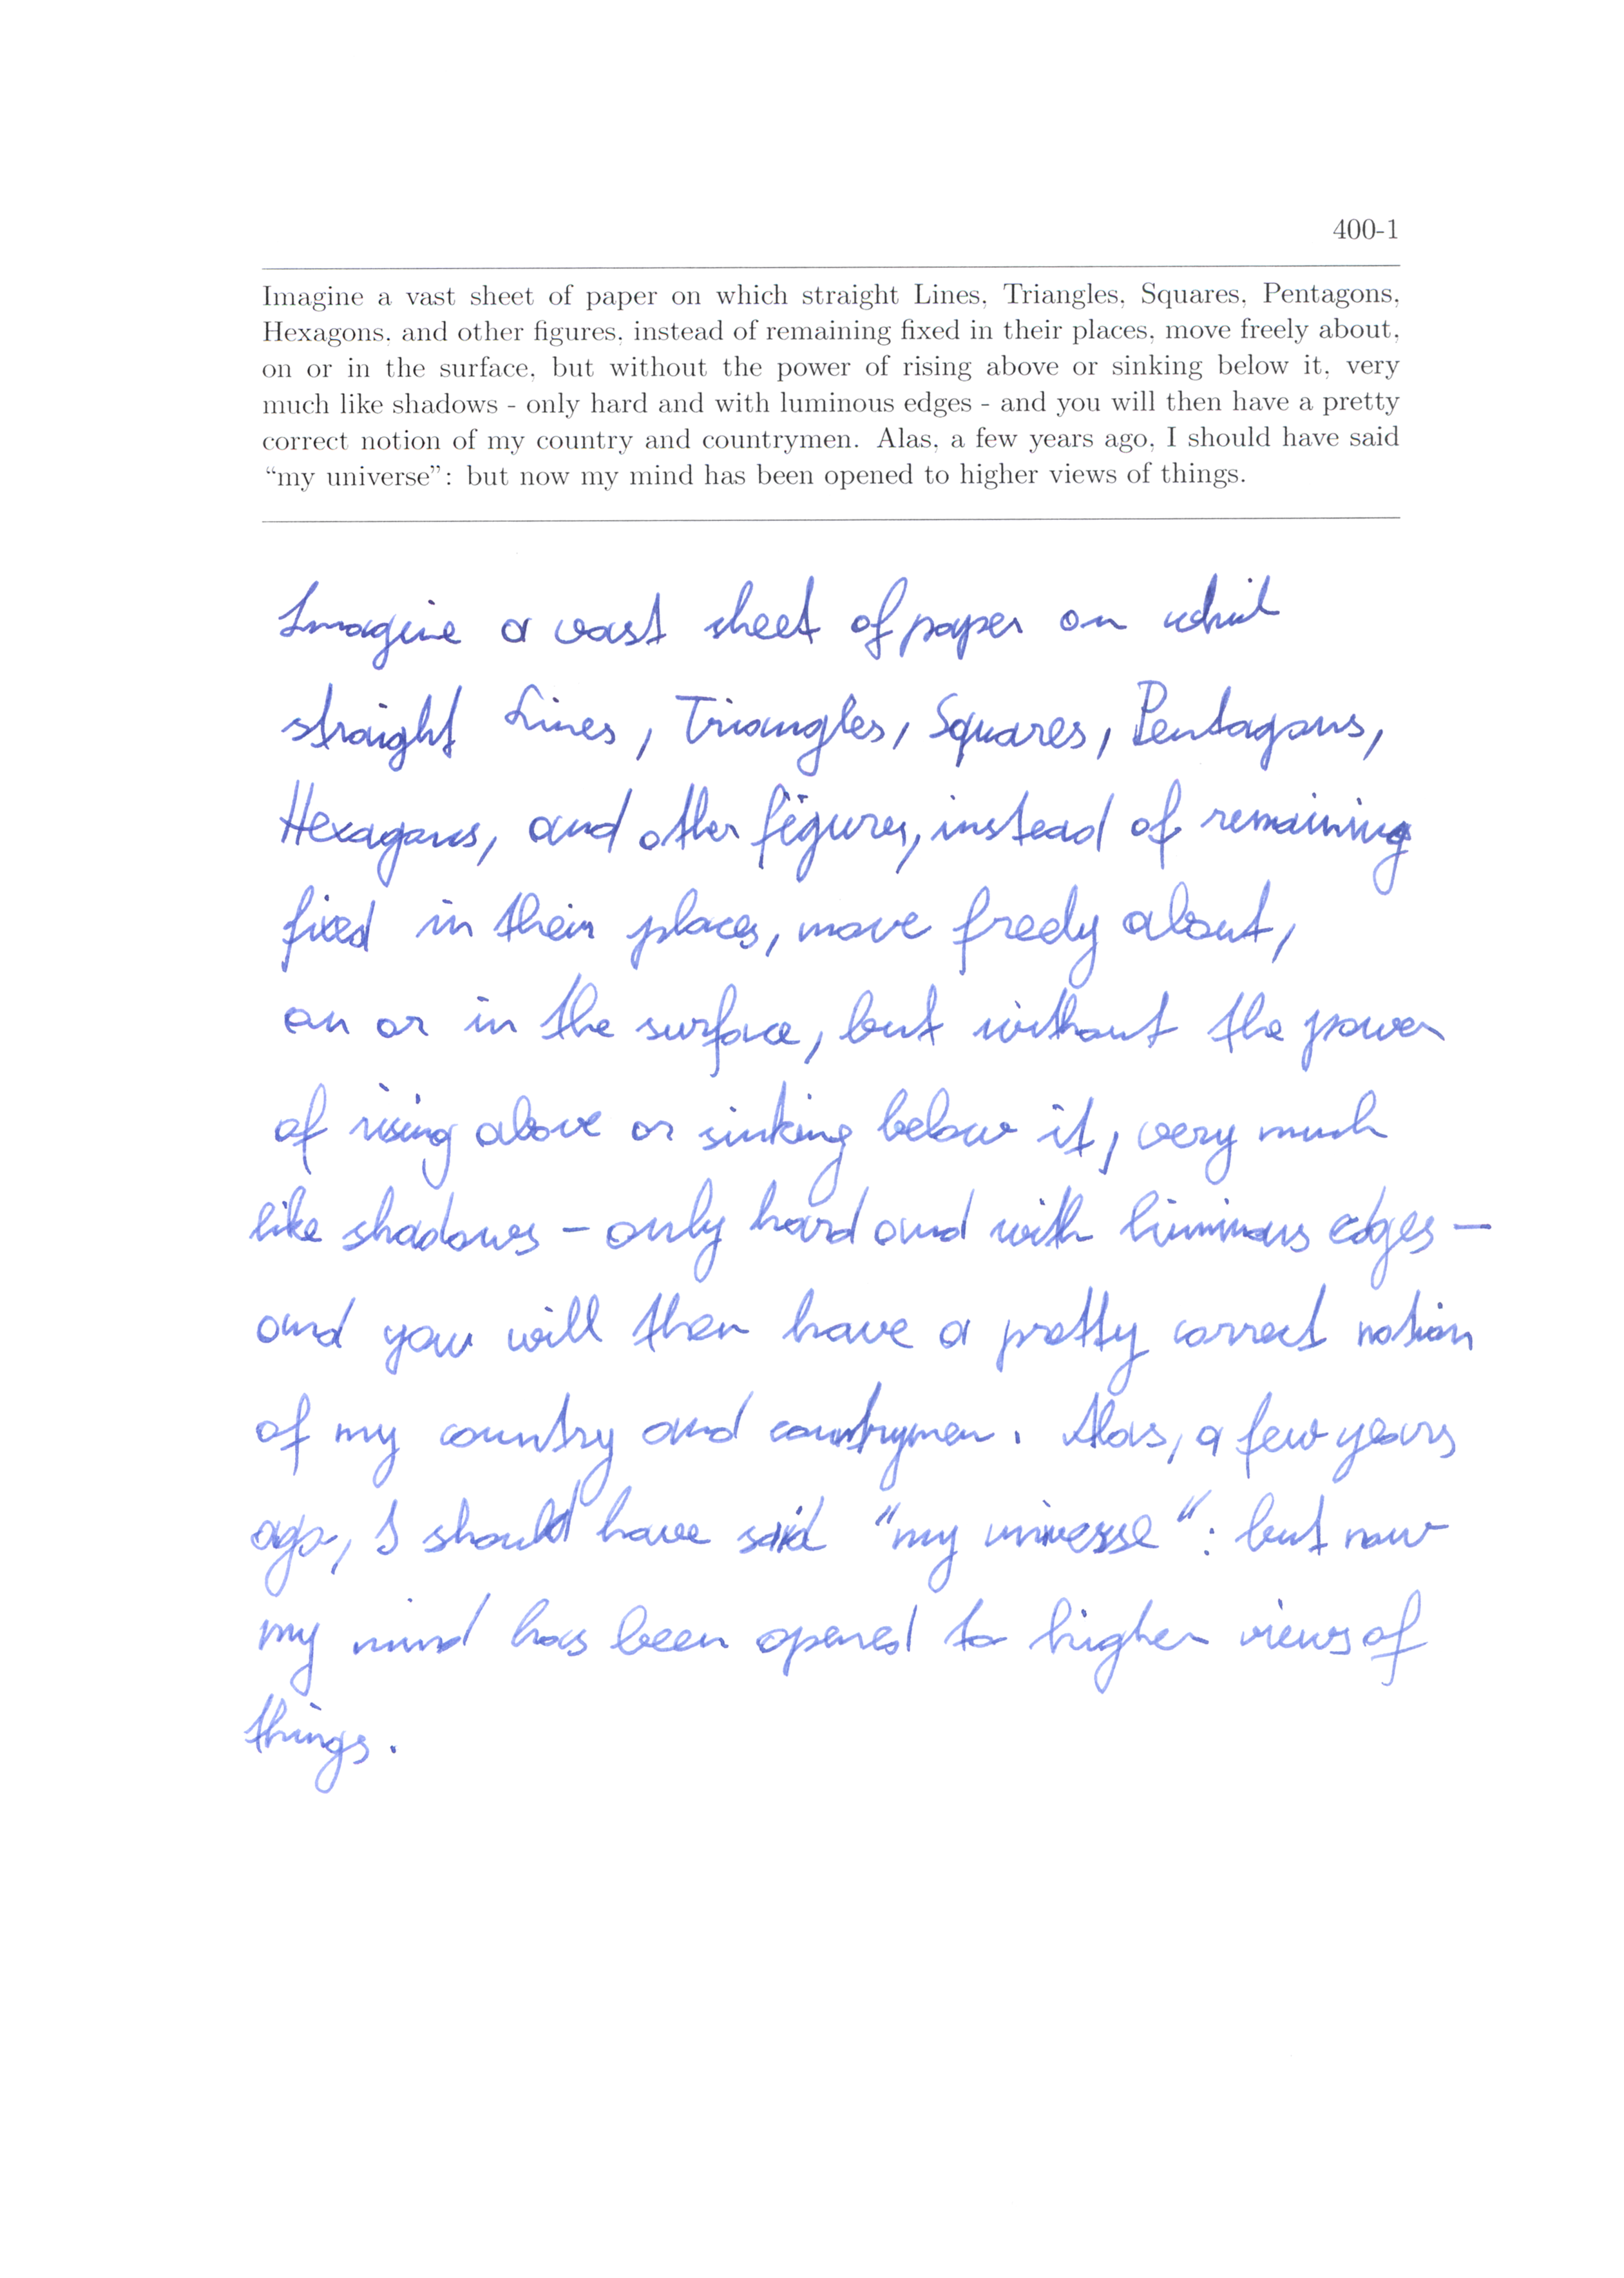 400-1
Imagine a vast sheet of paper on which straight Lines, Triangles, Squares, Pentagons,
Hexagons, and other figures, instead of remaining fixed in their places, move freely about,
on or in the surface, but without the power of rising above or sinking below it, very
much like shadows - only hard and with luminous edges - and you will then have a pretty
correct notion of my country and countrymen. Alas, a few years ago, I should have said
“my universe”: but now my mind has been opened to higher views of things.
Imagine a vast sheet of paper on
straight Lines, Triangles, Squares, Pentagons,
Hexagons, and other figures, instead of remaining
fixed in their places, move freely about,
on or in the surface, but without the power
of rising above or sinking below it, very much
like shadows - only hard and with luminous edges -
and you will then have a pretty correct notion
of my country and countrymen. Alas, a few years
ago, I should have said "my universe": but now
my mind has been opened to higher views of
things.